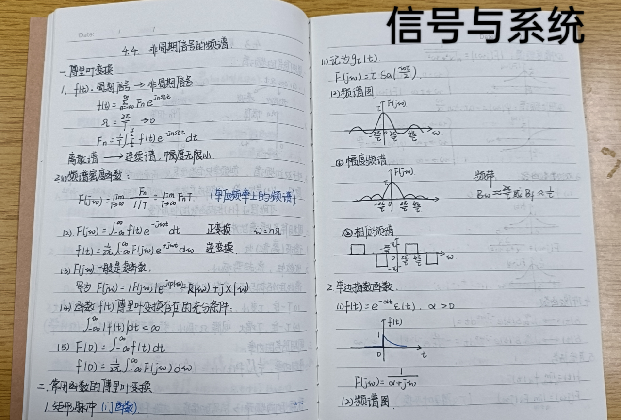 信号与系统
4.4 非周期信号的频谱
一. 傅里叶变换
1. f(t): 周期信号 → 非周期信号
f(t) = Σ Fn e^{jnΩt}
Ω = 2π/T → 0
Fn = 1/T ∫ f(t) e^{-jnΩt} dt
离散谱 → 连续谱, 幅度无限小
频谱密度函数:
F(jω) = lim Fn/(1/T) = lim FnT (单位频率上的频谱)
(2). F(jω) = ∫_{-∞}^{∞} f(t) e^{-jωt} dt 正变换 ω = nΩ
f(t) = 1/2π ∫_{-∞}^{∞} F(jω) e^{jωt} dω 逆变换
(3) F(jω) 一般是复函数.
写为 F(jω) = |F(jω)| e^{jφ(ω)} = R(ω) + jX(ω)
(4) 函数 f(t) 傅里叶变换存在的充分条件:
∫_{-∞}^{∞} |f(t)| dt < ∞
(5) F(0) = ∫_{-∞}^{∞} f(t) dt
f(0) = 1/2π ∫_{-∞}^{∞} F(jω) dω
二. 常用函数的傅里叶变换
1. 矩形脉冲 (门函数)
(1) 记为 gτ(t)
F(jω) = τ Sa(ωτ/2)
(2) 频谱图
F(jω)
τ
ω
① 幅度频谱
F(jω)
频带
Bω ≈ 2π/τ 或 Bf ≈ 1/τ
ω
② 相位频谱
ω
2. 单边指数函数.
(1) f(t) = e^{-αt} ε(t), α > 0
f(t)
1
0 t
F(jω) = 1/(α+jω)
(2) 频谱图.